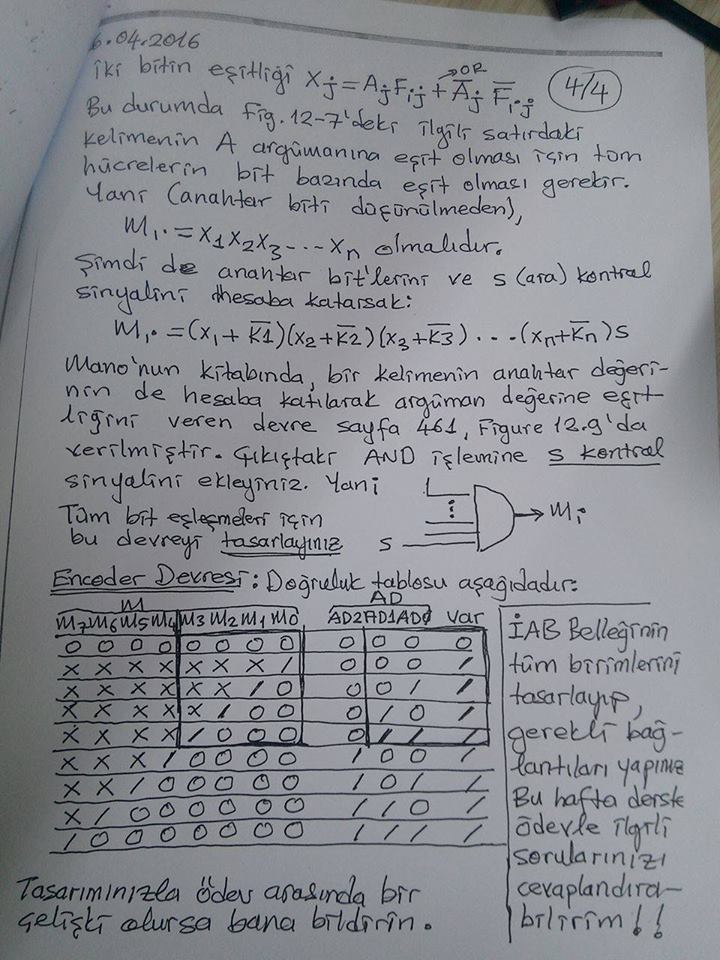 6.04.2016
iki bitin eşitliği Xj = AjFij + A̅j F̅ij
→OR
4/4
Bu durumda Fig. 12-7'deki ilgili satırdaki
kelimenin A argümanına eşit olması için tüm
hücrelerin bit bazında eşit olması gerekir.
Yani (anahtar biti düşünülmeden),
Mi = x1x2x3 --- xn olmalıdır.
Şimdi de anahtar bit'lerini ve s (ara) kontrol
sinyalini hesaba katarsak:
Mi = (x1 + K̅1)(x2 + K̅2)(x3 + K̅3) . . . (xn + K̅n)s
Mano'nun kitabında, bir kelimenin anahtar değeri-
nin de hesaba katılarak argüman değerine eşit-
liğini veren devre sayfa 461, Figure 12.9'da
verilmiştir. Çıkıştaki AND işlemine s kontrol
sinyalini ekleyiniz. Yani
Tüm bit eşleşmeleri için
bu devreyi tasarlayınız
s
Mi
Encoder Devresi: Doğruluk tablosu aşağıdadır:
M AD
M7 M6 M5 M4 M3 M2 M1 M0 AD2 AD1 AD0 Var
0 0 0 0 0 0 0 0 0 0 0 0
x x x x x x x 1 0 0 0 1
x x x x x x 1 0 0 0 1 1
x x x x x 1 0 0 0 1 0 1
x x x x 1 0 0 0 0 1 1 1
x x x 1 0 0 0 0 1 0 0 1
x x 1 0 0 0 0 0 1 0 1 1
x 1 0 0 0 0 0 0 1 1 0 1
1 0 0 0 0 0 0 0 1 1 1 1
İAB Belleğinin
tüm birimlerini
tasarlayıp,
gerekli bağ-
lantıları yapınız
Bu hafta derste
ödevle ilgili
sorularınızı
cevaplandıra-
bilirim!!
Tasarımınızla ödev arasında bir
çelişki olursa bana bildirin.